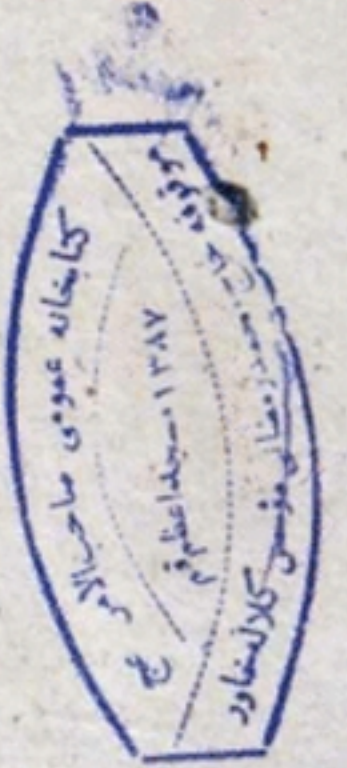 کتابخانه عمومی صاحب الامر عج
۱۳۸۷ مسجد اعظم قم
موقوفه حاج محمد رمضانی مؤسس کلاله خاور